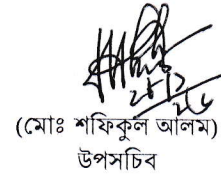 (মোঃ শফিকুল আলম)
উপসচিব